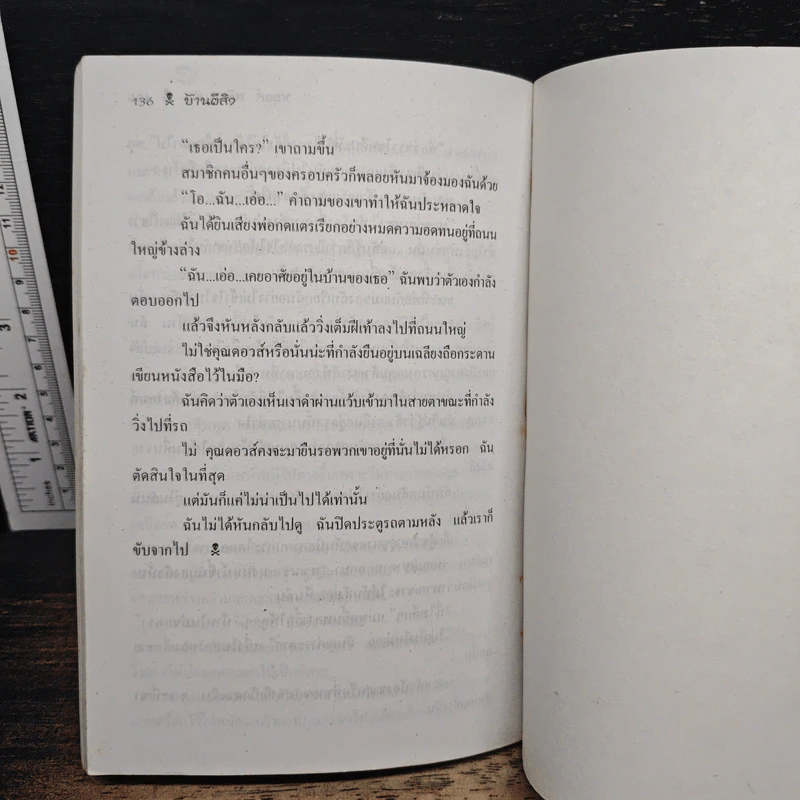 136 บ้านผีสิง
“เธอเป็นใคร?” เขาถามขึ้น
สมาชิกคนอื่นๆของครอบครัวก็พลอยหันมาจ้องมองฉันด้วย
“โอ...ฉัน...เอ่อ...” คำถามของเขาทำให้ฉันประหลาดใจ
ฉันได้ยินเสียงพ่อกดแตรเรียกอย่างหมดความอดทนอยู่ที่ถนน
ใหญ่ข้างล่าง
“ฉัน...เอ่อ...เคยอาศัยอยู่ในบ้านของเธอ” ฉันพบว่าตัวเองกำลัง
ตอบออกไป
แล้วจึงหันหลังกลับแล้ววิ่งเต็มฝีเท้าลงไปที่ถนนใหญ่
ไม่ใช่คุณดอวส์หรือนั่นน่ะที่กำลังยืนอยู่บนเฉลียงถือกระดาน
เขียนหนังสือไว้ในมือ?
ฉันคิดว่าตัวเองเห็นเงาดำผ่านแว้บเข้ามาในสายตาขณะที่กำลัง
วิ่งไปที่รถ
ไม่ คุณดอวส์คงจะมายืนรอพวกเขาอยู่ที่นั่นไม่ได้หรอก ฉัน
ตัดสินใจในที่สุด
แต่มันก็แค่ไม่น่าเป็นไปได้เท่านั้น
ฉันไม่ได้หันกลับไปดู ฉันปิดประตูรถตามหลัง แล้วเราก็
ขับจากไป